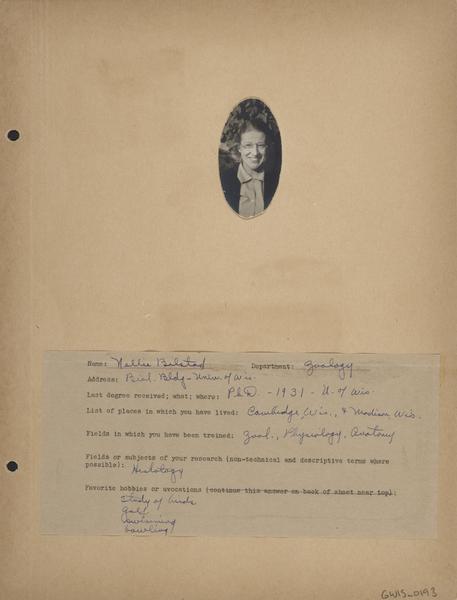 Name: Nellie Bilstad Department: Zoology
Address: Biol. Bldg - Univ. of Wis.
Last degree received; what; where; Ph.D. - 1931 - U. of Wis.
List of places in which you have lived: Cambridge, Wis., & Madison, Wis.
Fields in which you have been trained: Zool., Physiology, Anatomy
Fields or subjects of your research (non-technical and descriptive terms where
possible): Histology
Favorite hobbies or avocations (continue this answer on back of sheet near top):
Study of birds
golf
swimming
bowling
GWIS_0193